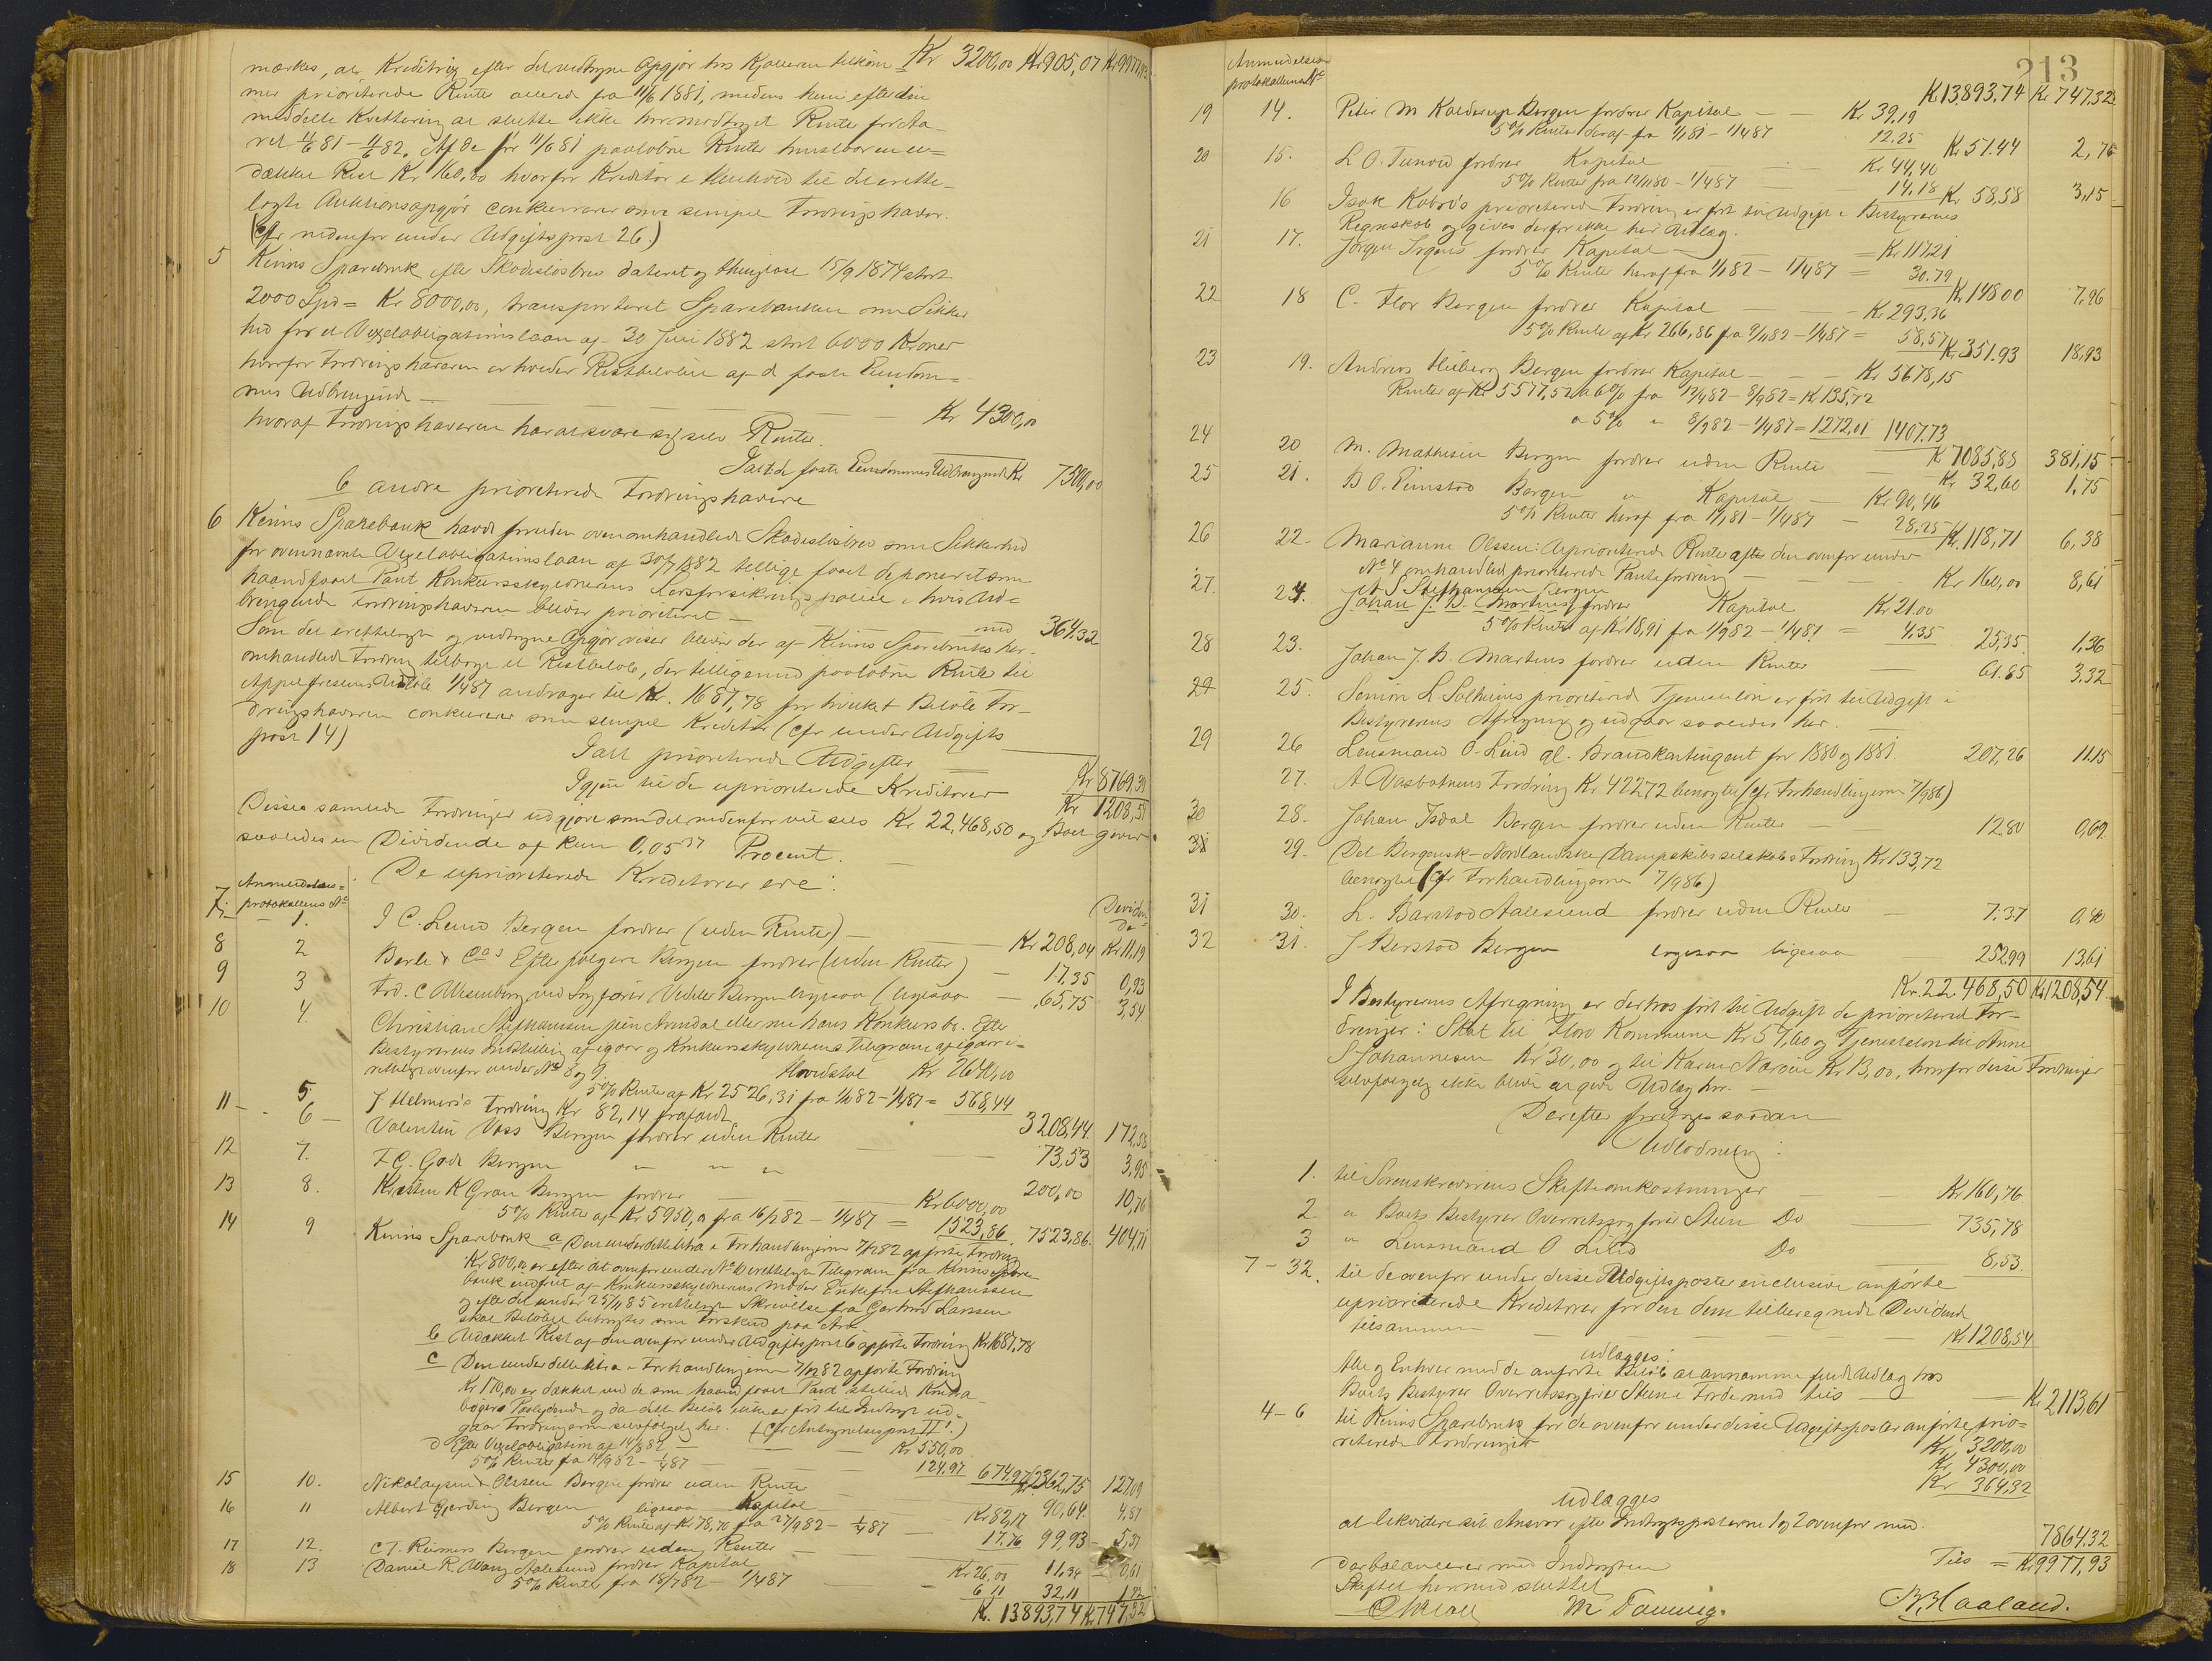 mærkes, at Kreditrix efter det vedtagne Opgjør hos Kjøberen tilkom Kr 3200,00 Kr 905,07 Kr 9977,93
mer prioriterede Renter allerede fra 11/6 1881, medens hun efter den
meddelte Kvittering at slutte ikke har modtaget Rente for Aa-
ret 11/6 81 – 11/6 82. Af de før 11/6 81 paaløbne Renter
dækket Rest Kr 160,00 hvorfor Kreditor i Henhold til det rette-
lagte Auktionsopgjør conkurrerer som simpel Fordringshaver.
(cfr nedenfor under Udgiftspost 26.)
5 Kinns Sparebank efter Skadesløsbrev dateret og thinglæst 15/9 1874 stort
2000 Spd = Kr 8000,00, transporteret Sparebanken som Sikker
hed for et Vexelobligationslaan af 30 Juni 1882 stort 6000 Kroner
hvorfor Fordringshaveren erholder Restbeløbet af d faste Eiendom-
mes Udbringende — Kr 4300,00
hvoraf Fordringshaveren har at svare sig selv Renter.
Ialt d faste Eiendommes Udbringende Kr 7500,00
b andre prioriterede Fordringshavere
6 Kinns Sparebank havde foruden ovenomhandlede Skadesløsbrev som Sikkerhed
for ovennævnte Vexelobligationslaan af 30/6 1882 tillige faaet deponeret som
haandfaaet Pant Konkursskyldnerens Livsforsikringspolice i hvis Ud-
bringende Fordringshaveren bliver prioriteret — med 364.32
Som det rettelagte og vedtagne Opgjør viser bliver der af Kinns Sparebanks her-
omhandlede Fordring tilbage et Restbeløb, der tilligemed paaløbne Renter til
Appelfristens Udløb 1/4 87 andrager til Kr. 1687,78 for hvilket Beløb For-
dringshaveren conkurrerer som simpel Kreditor (cfr under Udgifts
post 14)
Ialt prioriterede Udgifter — Kr 8769,39
Igjen til de uprioriterede Kreditorer Kr 1208,54
Disses samlede Fordringer udgjøre som det nedenfor vil sees Kr 22,468,50 og Boet giver
saaledes en Dividende af kun 0,0537 Procent. —
De uprioriterede Kreditorer ere:
Anmeldelses=
protokollens No
Dividen
de=
7 1. I C. Lund Bergen fordrer (uden Renter) — Kr 208,04 Kr 11,19
8 2 Berle & Cos Efterfølgere Bergen fordrer (uden Renter) — 17.35 0,93
9 3 Fred. C Wesenberg ved Sagfører Vedeler Bergen ligesaa (ligesaa — 65,75 3,54
10 4. Christian Stephanssen jun Arendal eller nu hans Konkursbo. Efter
Bestyrerens Indstilling af igaar og Konkursskyldnerens Telegram af igaar i-
rettelagt ovenfor under No 8 og 9. Hovedstol Kr 2640,00
5% Rente af Kr 2526,31 fra 1/10 82 – 1/4 87 = 568,44
3208,44 172,58
5. J Helmers's Fordring Kr 82,14 frafaldt
11 — 6 — Valentin Voss Bergen fordrer uden Renter — 73,53 3,95
12 7. F G. Gade Bergen " " " 200,00 10,76
13 8. Kristen K Gran Bergen fordrer — Kr 6000,00
5% Rente af Kr 5950,00 fra 16/2 82 – 1/4 87 = 1523,86 7523,86 404,71
14 9 Kinns Sparebank a Den under dette Litra i Forhandlingerne 7/12 82 opførte Fordring
Kr 800,00 er efter det ovenfor under No 10 rettelagte Telegram fra Kinns Spare-
bank indfriet af Konkursskyldnerens Moder Enkefru Stephanssen
og efter det under 25/11 85 rettelagte Skrivelse fra Gerhard Larssen
skal Beløbet betragtes som Forskud paa Arv.
b Udækket Rest af den ovenfor under Udgiftspost 6 opførte Fordring Kr 1687,78
c Den under dette Litra i Forhandlingerne 7/12 82 opførte Fordring
Kr 170,00 er dækket ved de som haandfaaet Pant stillede Kontra-
bøgers Paalydende og da dette Beløb ikke er ført til Indtægt ud-
gaar Fordringerne selvfølgelig her. (cfr Antegnelsespost II!)
d Efter Vexelobligation af 14/8 82 — Kr 550,00
5% Renter fra 14/9 82 – 1/4 87 — 124.97 674.97 Kr 2362,75 127,09
15 10. Nikolaysen & Olssen Bergen fordrer uden Rente — 90,64 4,87
16 11 Albert Gjerding Bergen ligesaa Kapital — Kr 82,17
5% Rente af Kr 78,70 fra 27/9 82 – 1/4 87 — 17.76 99,93 5,37
17 12. C T. Reimers Bergen fordrer uden Renter — 11,34 0,61
18 13 Daniel R. Wang Aalesund fordrer Kapital — Kr 26,00
5% Renter fra 18/7 82 – 1/4 87 — 6 11 32,11 1,72
Kr. 13893,74 Kr 747,32
213
Anmeldelses
protokollens No
Kr 13,893,74 Kr 747,32
19 14. Peter M Kolderup Bergen fordrer Kapital — Kr 39,19
5% Renter deraf fra 1/1 81 – 1/4 87 12.25 Kr 51.44 2,76
20 15. L O. Tunold fordrer Kapital — Kr 44,40
5% Renter fra 12/11 80 – 1/4 87 — 14,18 Kr 58,58 3,15
16 Isak Kobro's prioriterede Fordring er ført til Udgift i Bestyrerens
Regnskab og gives derfor ikke her Udlæg.
21 17. Jørgen Irgens fordrer Kapital — = Kr 117,21
5% Renter heraf fra 1/1 82 – 1/4 87 = 30.79 Kr 148 00 7,96
22 18 C. Flor Bergen fordrer Kapital — Kr 293,36
5% Rente af Kr 266,86 fra 9/11 82 – 1/4 87 = 58,57 Kr 351.93 18,93
23 19. Andreas Hieberg Bergen fordrer Kapital — Kr 5678,15
Renter af Kr 5577,52 a 6% fra 12/4 82 – 8/9 82 = Kr 135,72
a 5% " 8/9 82 – 1/4 87 = 1272,01 1407.73
Kr 7085,88 381,15
24 20 M. Mathisen Bergen fordrer uden Rente — Kr 32,60 1,75
25 21. B O. Eimstad Bergen " Kapital — Kr 90,46
5% Renter heraf fra 1/1 81 – 1/4 87 — 28,25 Kr. 118,71 6,38
26 22 – Marianne Olssen: Uprioriterede Renter efter den ovenfor under
No 4 omhandlede prioriterede Pantefordring — Kr 160,00 8,61
27. 24. S Stephanssen Bergen
Johan J. B. Martens fordrer Kapital Kr 21.00
5% Rente af Kr 18,91 fra 1/9 82 – 1/4 87 = 4.35 25,35. 1,36
28 23. Johan J. B. Martens fordrer uden Renter — 61.85 3.32
29 25. Severin L. Solheims prioriterede Tjenesteløn er ført til Udgift i
Bestyrerens Afregning og udgaar saaledes her.
29 26 Lensmand O. Lind gl. Brandkontingent for 1880 og 1881. 207,26 11.15
27. A Vasbotnens Fordring Kr 422 72 benegtet (cfr Forhandlingerne 7/9 86)
30 28. Johan Isdal Bergen fordrer uden Renter — 12.80 0,69
31 29. Det Bergensk-Nordlandske Dampskibsselskabs Fordring Kr 133,72
benegtet (cfr Forhandlingerne 7/9 86)
31 30. L. Barstad Aalesund fordrer uden Renter — 7.37 0,40
32 31. J Berstad Bergen ligesaa ligesaa 252,99 13,61
Kr. 22.468,50 Kr 1208,54
I Bestyrerens Afregning er derhos ført til Udgift de prioriterede For-
dringer: Skat til Florø Kommune Kr 57,60 og Tjenesteløn til Anne
S Johannesen Kr 30,00 og til Karen Kr 13,00, hvorfor disse Fordringer
selvfølgelig ikke blive at give Udlæg her. —
Derefter foretages saadan
Udlodning:
1. til Sorenskriverens Skifteomkostninger — Kr 160,76
2 " Boets Bestyrer Overretssagfører Steen Do — 735,78
3 " Lensmand O Lind Do — 8,53
7 – 32. til de ovenfor under disse Udgiftsposter inclusive anførte
uprioriterede Kreditorer for den dem tilberegnede Dividende
tilsammen — Kr 1208,54
udlægges:
Alle og Enhver med de anførte Beløb at annamme fuldt Udlæg hos
Boets Bestyrer Overretssagfører Steen i Førde med tils — Kr 2113,61
4 – 6 til Kinns Sparebank for de ovenfor under disse Udgiftsposter anførte prio-
riterede Fordringer Kr. 3200,00
Kr 4300,00
Kr 364,32
udlægges
at likvidere sit Ansvar efter Indtægtsposterne 1 og 2 ovenfor med. 7864.32
Tils = Kr 9977,93
Der balancerer med Indtægten
Skiftet hermed sluttet
M Tanning. B. Haaland.